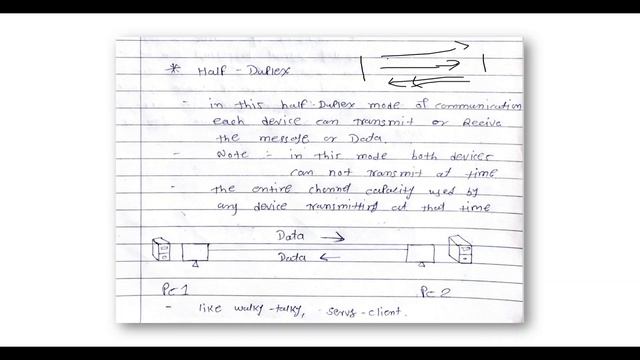 * Half-Duplex
- in this half-Duplex mode of communication
each device can transmit or Recive
the message or Data.
- Note :- in this mode both devices
can not transmit at time
- the entire channel capacity used by
any device transmitting at that time
Data
Data
Pc 1 Pc 2
- like walky-talky, servs-client.